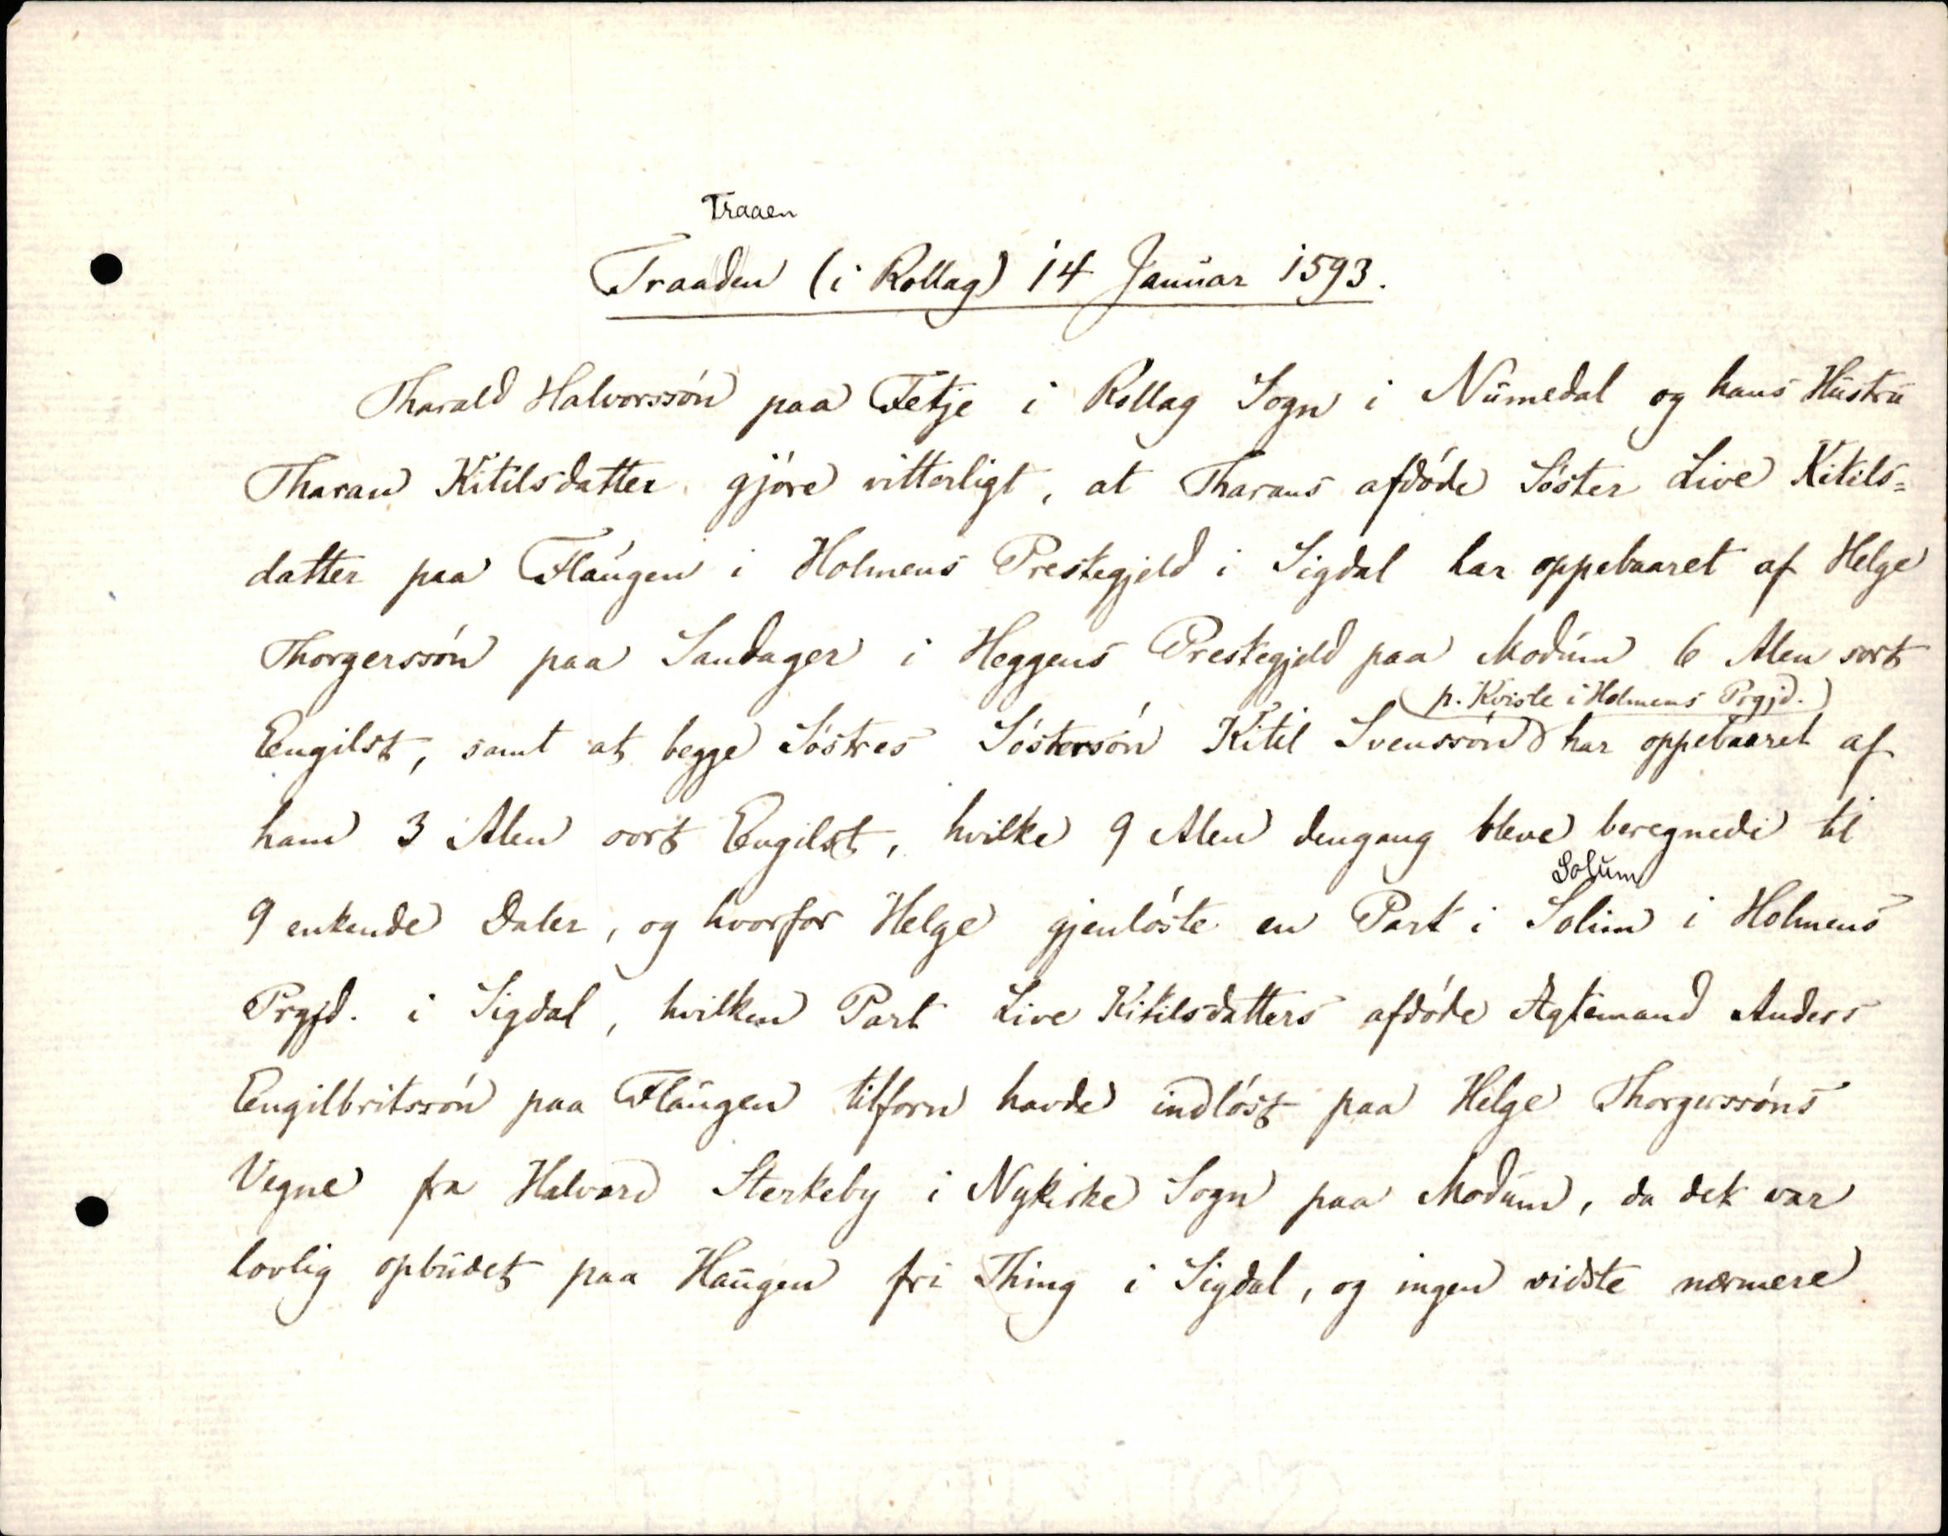 Traaen
Traaden (i Rollag) 14 Januar 1593.
Tharald Halvorssön paa Fetje i Rollag Sogn i Numedal og hans Hustru
Tharan Kitilsdatter gjöre vitterligt, at Tharans afdöde Söster Live Kitils-
datter paa Flaugen i Holmens Prestegjeld i Sigdal har oppebaaret af Helge
Thorgerssön paa Sandager i Heggens Prestegjeld paa Modum 6 Alen sort
(p. Kvisle i Holmens Prgjd.)
Engilst, samt at begge Söstres Söstersön Kitil Svenssön har oppebaaret af
ham 3 Alen sort Engilst, hvilke 9 Alen dengang bleve beregnede til
Solum
9 enkende Daler, og hvorfor Helge gjenlöste en Part i Solim i Holmens
Prgjd. i Sigdal, hvilken Part Live Kitilsdatters afdöde Ægtemand Anders
Engilbritssön paa Flaugen tilforn havde indlöst paa Helge Thorgerssöns
Vegne fra Halvard Sterkeby i Nykirke Sogn paa Modum, da det var
lovlig opbudet paa Haugen fri Thing i Sigdal, og ingen vidste nærmere